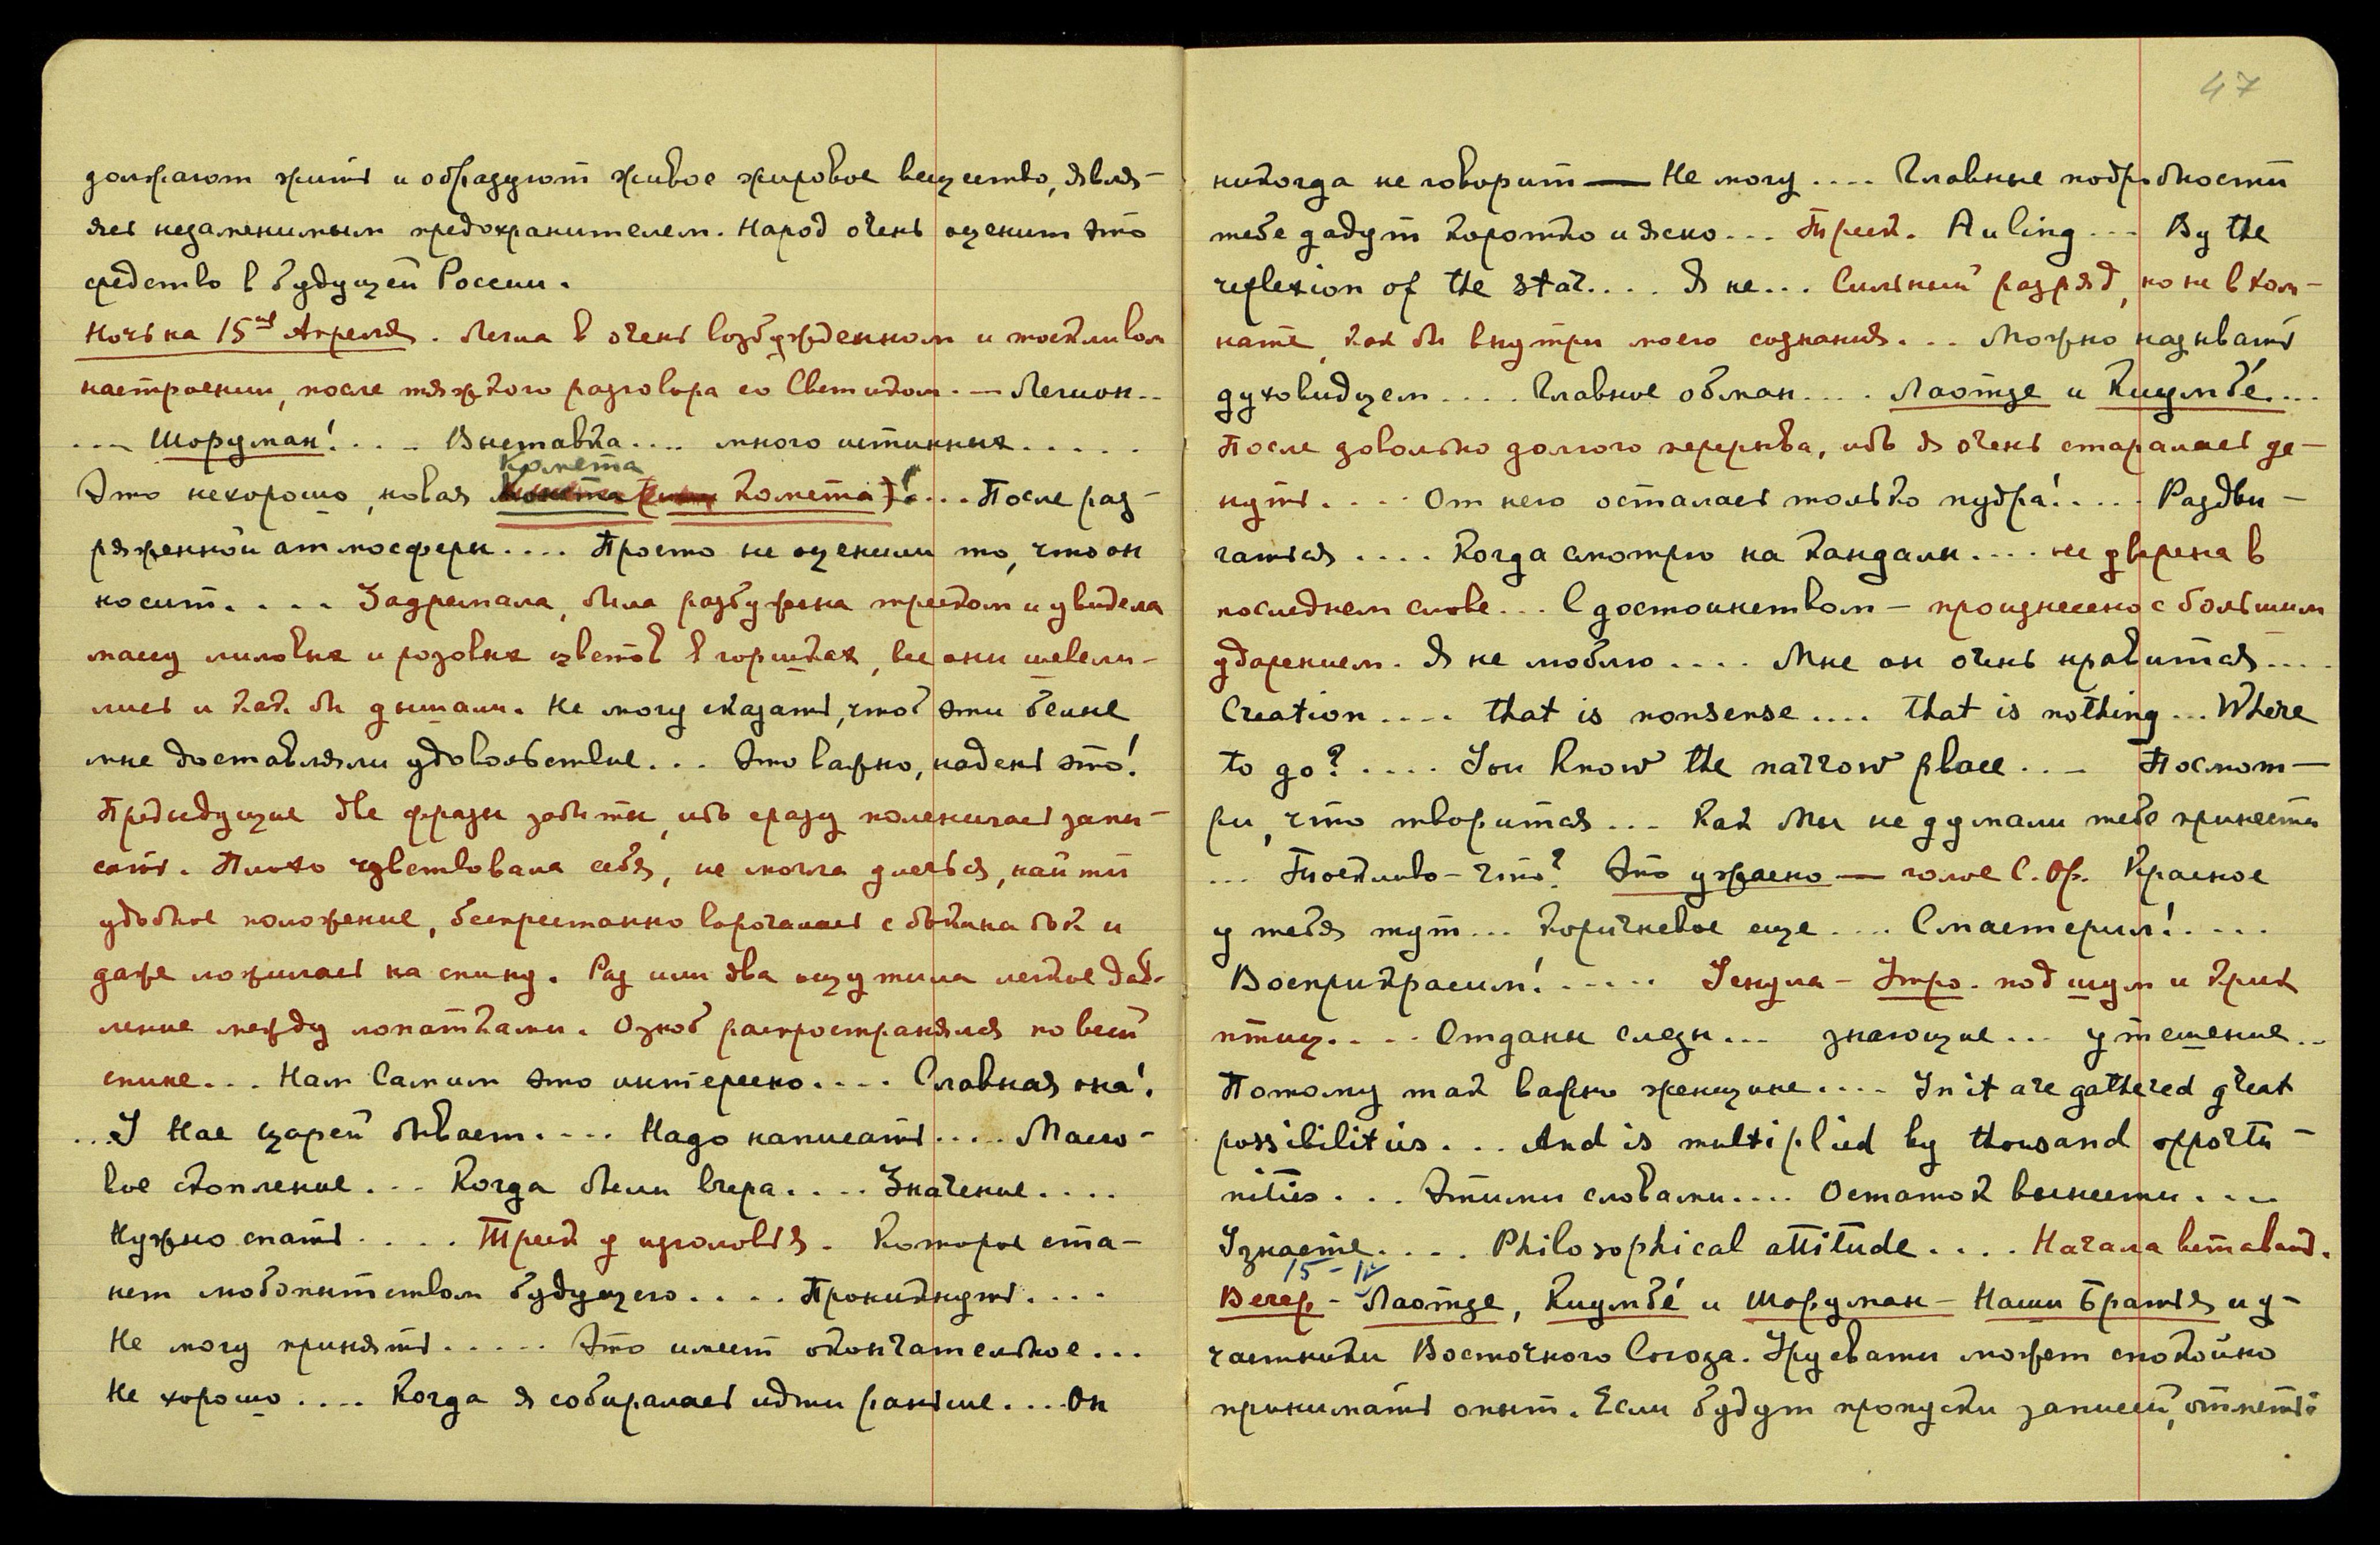 должают жить и образуют живое жировое вещество, явля-
ясь незаменимым предохранителем. Народ очень оценит это
средство в будущей России.
Ночь на 15ое Апреля. Легла в очень возбужденном и тоскливом
настроении, после тяжкого разговора со Светиком. — Легион...
... Шоруман! .... Выставка .... много истинных .....
Комета
Это нехорошо, новая комета)! ... После раз-
ряженной атмосферы .... Просто не оценили то, что он
носит. ... Задремала, была разбужена треском и увидела
массу лиловых и розовых цветов в горшках, все они шевели-
лись и как бы дышали. Не могу сказать, чтоб эти белые
мне доставляли удовольствие... Это важно, надень это!
Предыдущие две фразы забыты, ибо сразу поленилась запи-
сать. Плохо чувствовала себя, не могла улечься, найти
удобное положение, беспрестанно ворочалась с бока на бок и
даже ложилась на спину. Раз или два ощутила легкое дав-
ление между лопатками. Озноб распространялся по всей
спине... Нам Самим это интересно.... Славная она!
...У Нас царей бывает.... Надо написать..... Массо-
вое скопление... Когда были вчера.... Значение....
Нужно спать..... Треск у изголовья. Которое ста-
нет любопытством будущего.... Проникнуть....
Не могу принять..... Это имеет окончательное...
Не хорошо.... Когда я собиралась идти раньше.... Он
47
никогда не говорит — Не могу.... Главные подробности
тебе дадут коротко и ясно... Треск. A uling... By the
reflexion of the star.... Я не... Сильный разряд, но не в ком-
нате, как бы внутри моего сознания... Можно называть
духовидцем.... Главное обман.... Лаотзе и Киумбé....
После довольно долгого перерыва, ибо я очень старалась ус-
нуть.... От него осталась только пудра!.... Раздви-
гаться.... Когда смотрю на кандалы.... не уверена в
последнем слове... С достоинством — произнесено с большим
ударением. Я не люблю.... Мне он очень нравится....
Creation.... that is nonsense.... that is nothing... Where
to go?.... You know the narrow place... Посмот-
ри, что творится... Как Мы не думали тебе принести
... Тоскливо — что? Это ужасно — голос С. Ор. Красное
у тебя тут... Коричневое еще.... Смастерил!....
Восприкрасим!..... Уснула — Утро. под шум и крик
птиц.... Отданы слезы... знающие... утешение...
Потому так важно женщине.... In it are gathered great
possibilities... And is multiplied by thousand opportu-
nities... Этими словами.... Остаток вынести....
Узнаете.... Philosophical attitude.... Начала вставать.
15 - IV
Вечер - Лаотзе, Киумбé и Шоруман — Наши Братья и у-
частники Восточного Союза. Урусвати может спокойно
принимать опыт. Если будут пропуски записей, отметь: